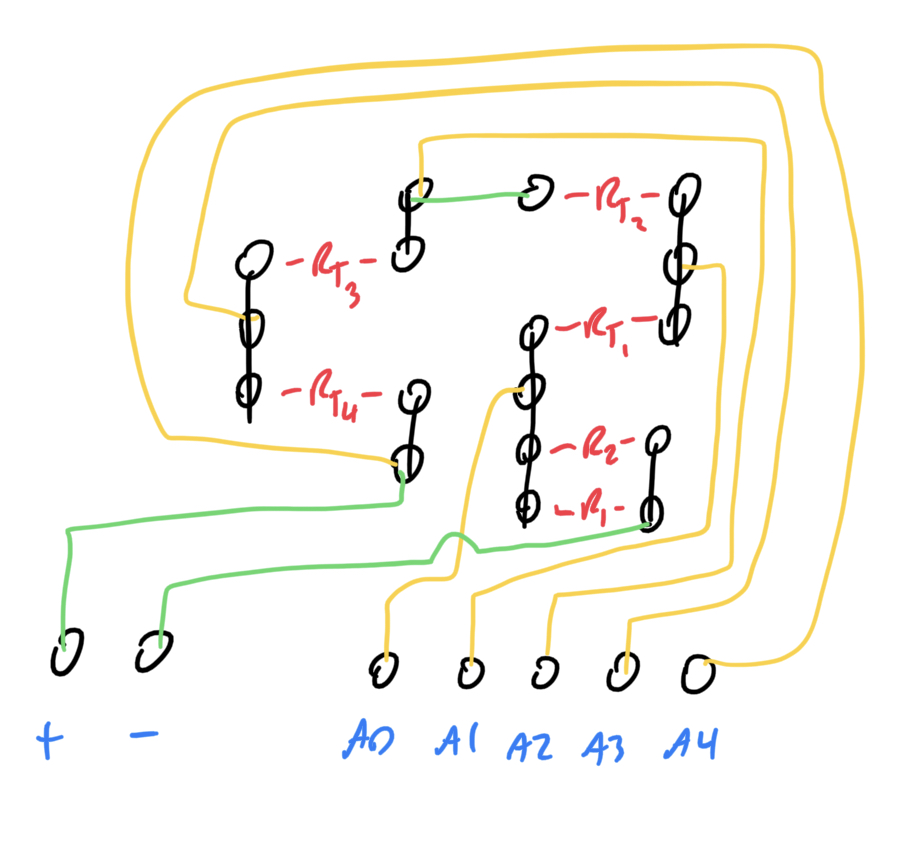 -RT2-
-RT3-
-RT1-
-RT4-
-R2-
-R1-
+ - A0 A1 A2 A3 A4